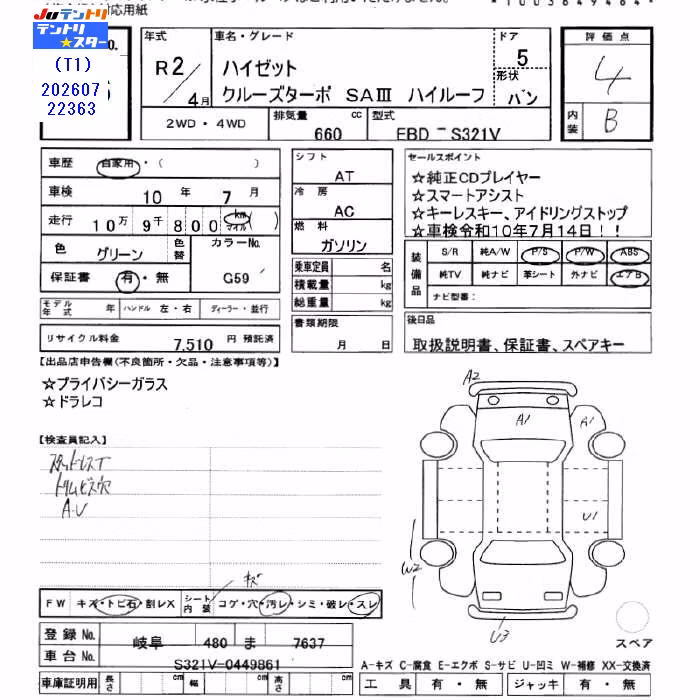 対応用紙
*1003649484*
JUテントリ
テントリ★スター
(T1)
202607
22363
No.
年式
R2/4月
車名・グレード
ハイゼット
クルーズターボ SAⅢ ハイルーフ
ドア
5
形状
バン
評価点
4
内装
B
2WD・4WD
排気量
660 cc
型式
EBD-S321V
車歴
自家用・( )
車検
10年 7月
走行
10万9千800 km マイル( )
色
グリーン
色替
カラーNo.
G59
保証書
有・無
シフト
AT
冷房
AC
燃料
ガソリン
乗車定員 名
積載量 kg
総重量 kg
セールスポイント
☆純正CDプレイヤー
☆スマートアシスト
☆キーレスキー、アイドリングストップ
☆車検令和10年7月14日!!
装備品
S/R 純A/W P/S P/W ABS
純TV 純ナビ 革シート 外ナビ エアB
ナビ型番:
モデル年式 年 ハンドル 左・右 ディーラー・並行
リサイクル料金 7,510 円 預託済
書類期限
月 日
後日品
取扱説明書、保証書、スペアキー
【出品店申告欄(不良箇所・欠品・注意事項等)】
☆プライバシーガラス
☆ドラレコ
【検査員記入】
スタッドレスT
トリムビス穴
A・U
A2
A1
A1
U1
W2
U3
スペア
キズ
FW キズ・トビ石・割レX シート内装 コゲ・穴・汚レ・シミ・破レ・スレ
登録No. 岐阜 480 ま 7637
車台No. S321V-0449861
車庫証明用 長さ cm 幅 cm 高さ cm
A-キズ C-腐食 E-エクボ S-サビ U-凹ミ W-補修 XX-交換済
工具 有・無 ジャッキ 有・無